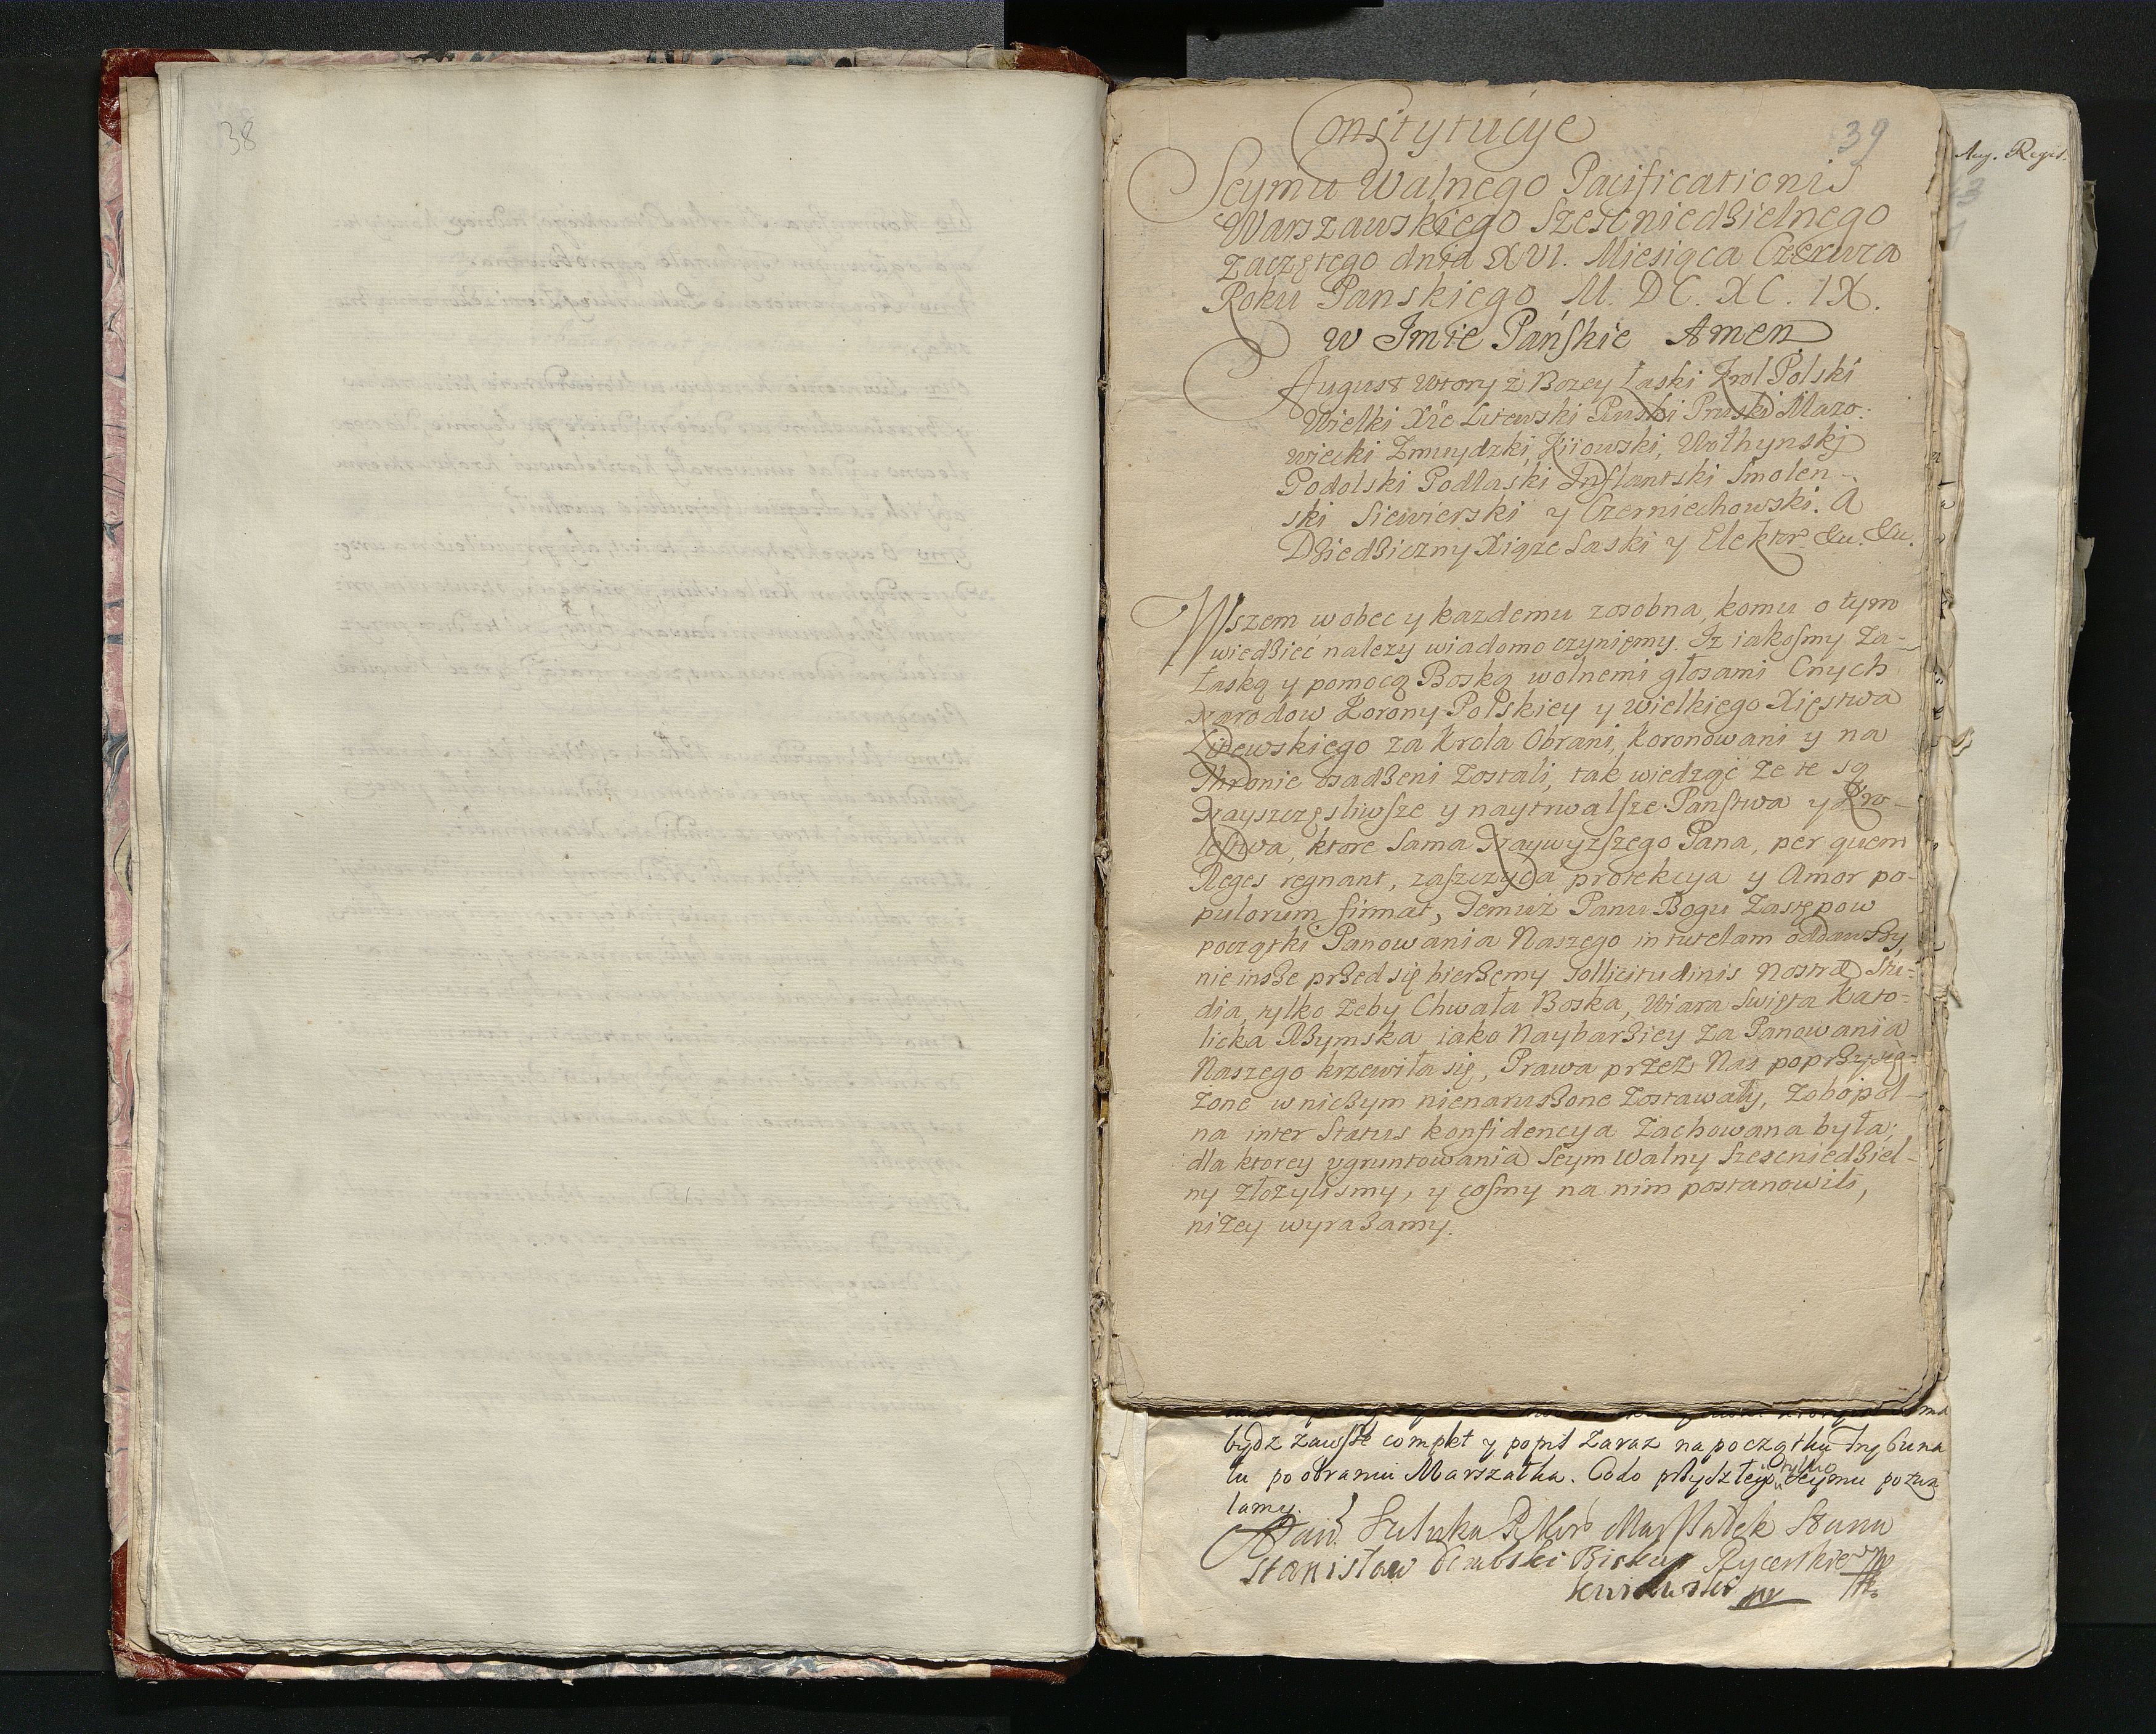 38
39
Constytucye
Seymu Walnego Pacificationis
Warszawskiego Szescniedzielnego
zaczętego dnia XVI. Miesiąca Czerwca
Roku Panskiego M. DC. XC. IX.
w Imie Pańskie Amen
August Wtory z Bozey Łaski Krol Polski
Wielki Xże Litewski Ruski Pruski Mazo:
wiecki Zmuydzki, Kiiowski, Wołhynski
Podolski Podlaski Inflantski Smolen-
ski Siewierski y Czerniechowski. A
Dziedziczny Xiąze Saski y Elektor &c. &c.
Wszem wobec y kazdemu zosobna, komu o tym
wiedzieć nalezy wiadomo czyniemy. Iz iakosmy Za-
Łaską y pomocą Boską wolnemi głosami Cnych
Narodow Korony Polskiey y Wielkiego Xięstwa
Litewskiego za Krola Obrani, koronowani y na
Thronie osadzeni Zostali, tak wiedząć Ze te są
Nayszczęsliwsze y naytrwalsze Panstwa y Kro-
lestwa, ktore Sama Naywyzszego Pana, per quem
Reges regnant, zaszczyca protekcya y Amor po-
pulorum firmat, Temuz Panu Bogu Zastępow
początki Panowania Naszego in tutelam oddawszy,
nie insze przed się bierzemy sollicitudinis Nostræ Stu-
dia, tylko Zeby Chwała Boska, Wiara Swięta Kato-
licka Rzymska iako Naybarziey Za Panowania
Naszego krzewiła się, Prawa przez Nas poprzysię-
zone wniczym nienaruszone Zostawały, Zobopol-
na inter Status konfidencya Zachowana była;
dla ktorey ugruntowania Seym Walny Szescniedziel-
ny złozylismy, y cosmy na nim postanowili,
nizey wyrazamy.
Aug. Regis.
bydz zawsze complet y popis Zaraz na początku Trybuna
łu po obraniu Marszałka. Co do przyszłego tylko Seymu pozwa
lamy.
Stanisław Biskup